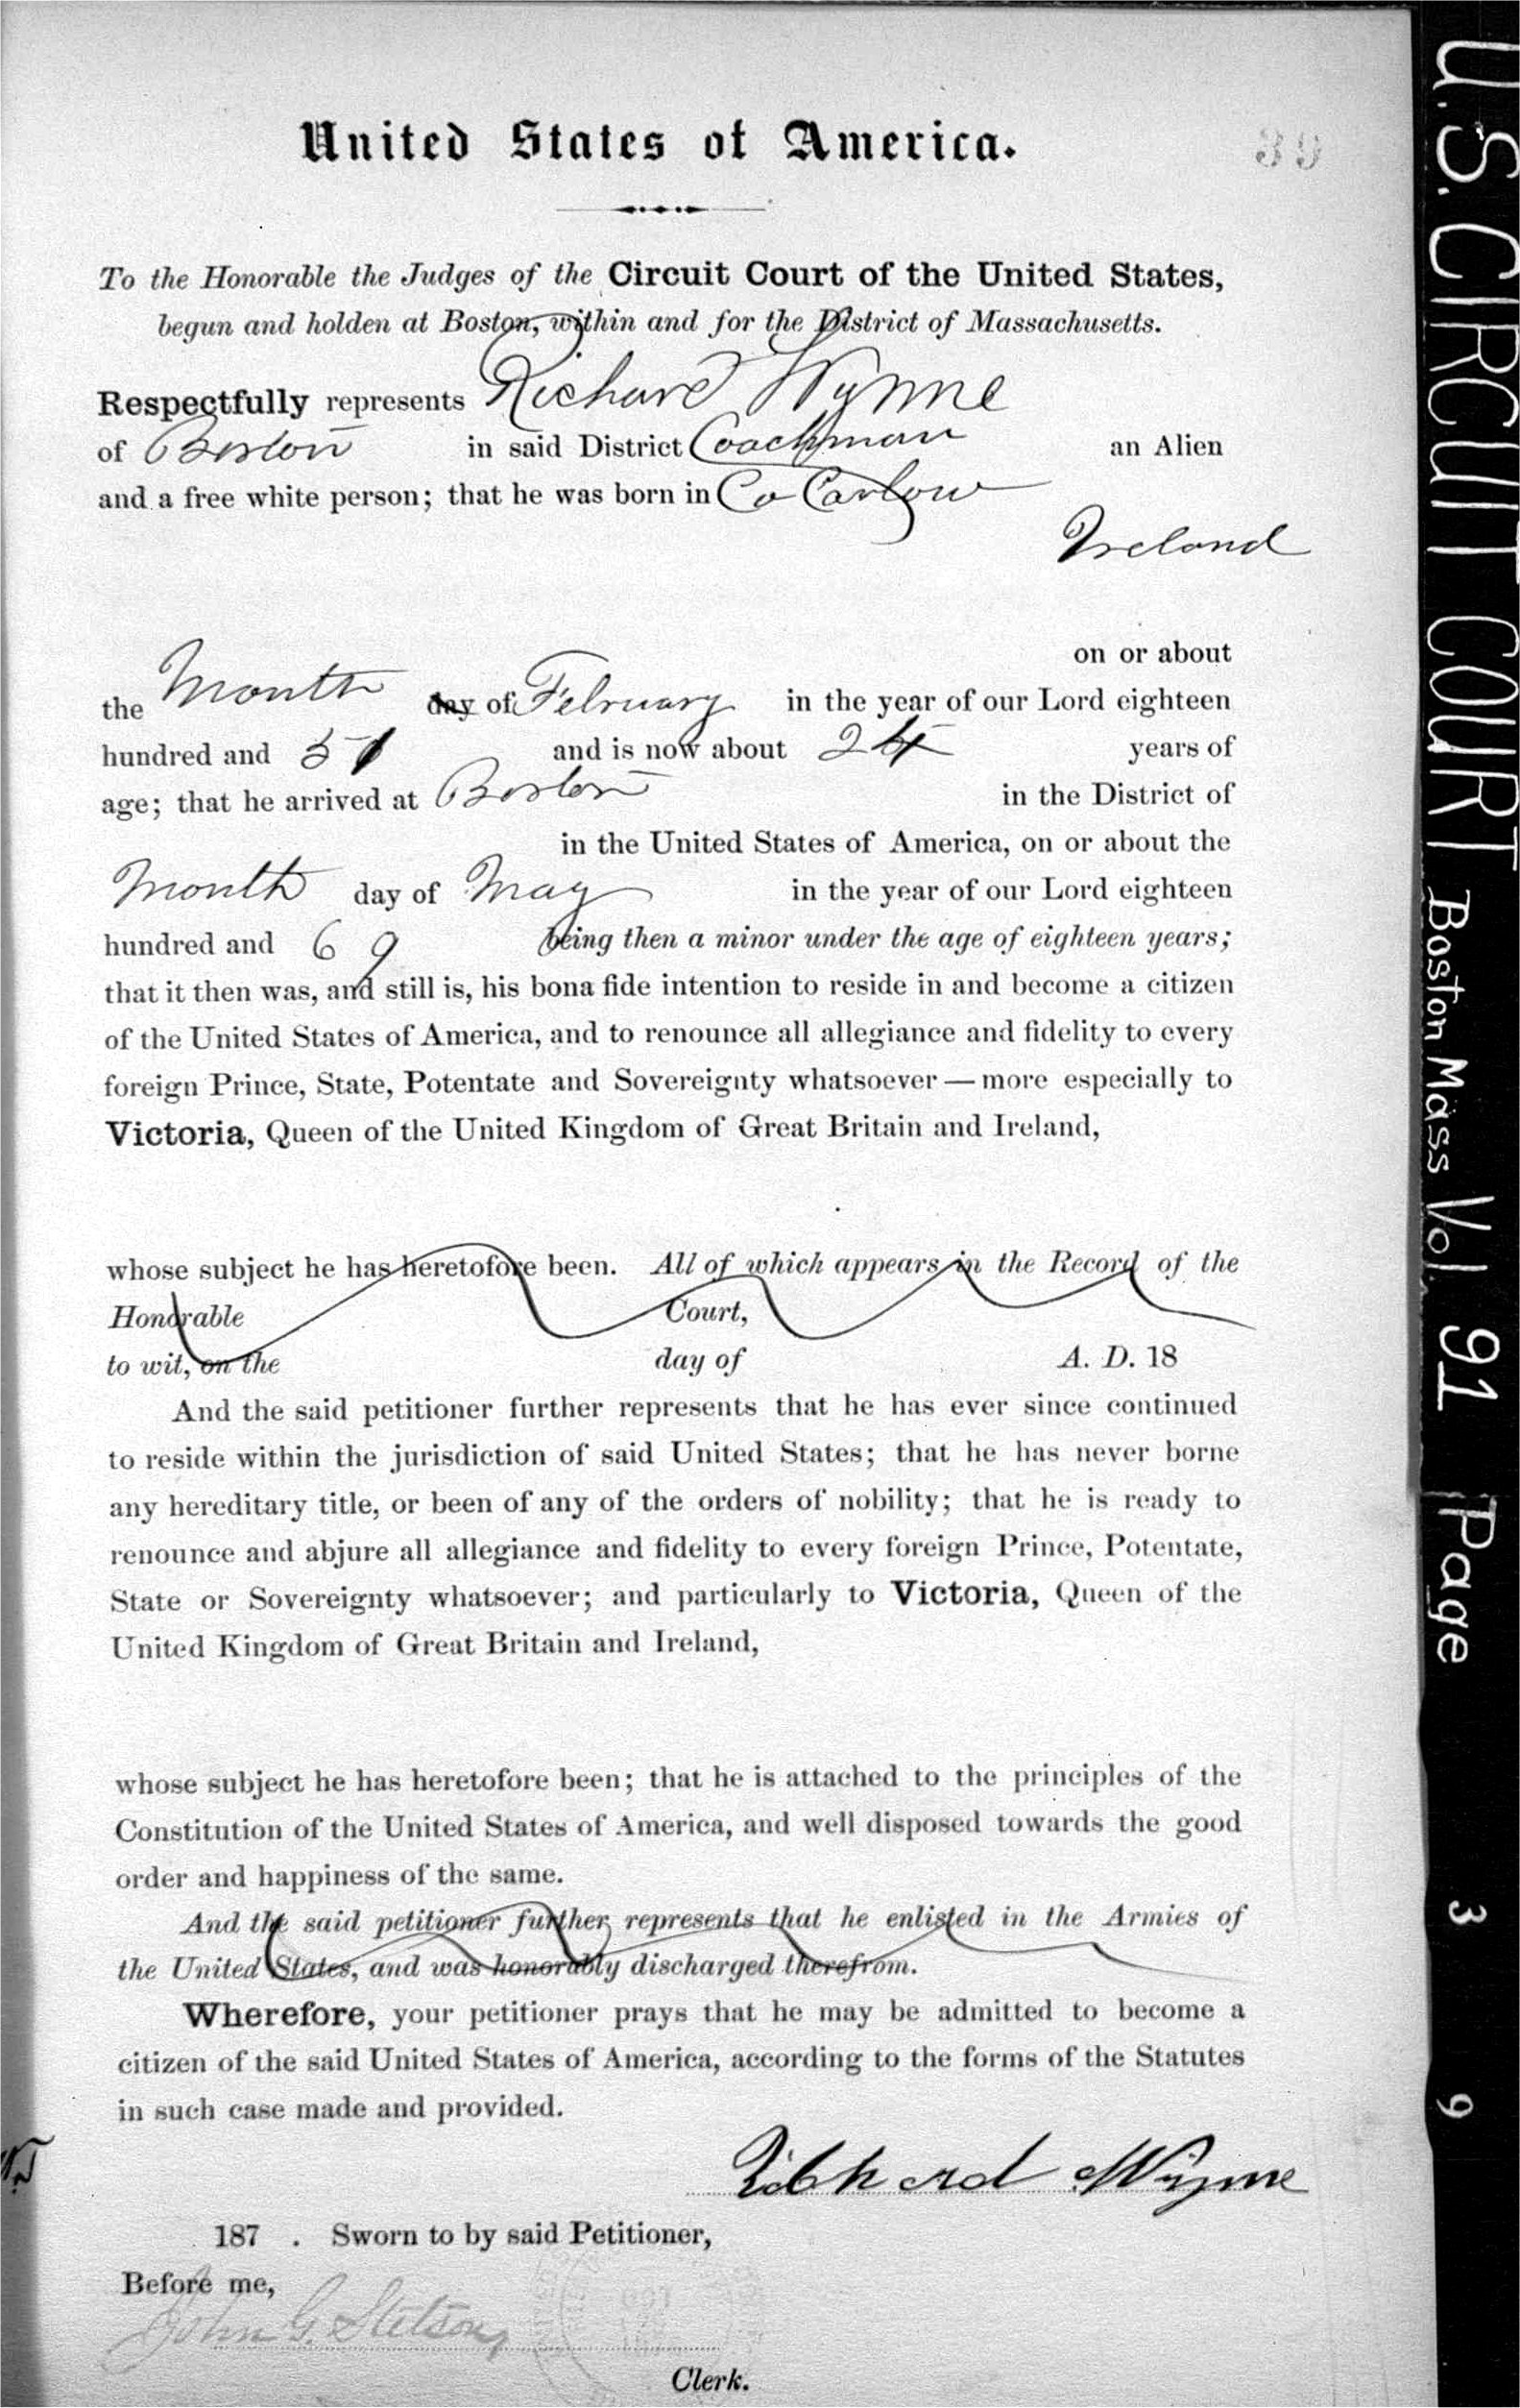 United States of America.
39
To the Honorable the Judges of the Circuit Court of the United States,
begun and holden at Boston, within and for the District of Massachusetts.
Respectfully represents Richard Wynne
of Boston in said District Coachman an Alien
and a free white person; that he was born in Co Carlow
Ireland
on or about
the Month day of February in the year of our Lord eighteen
hundred and 51 and is now about 24 years of
age; that he arrived at Boston in the District of
in the United States of America, on or about the
Month day of May in the year of our Lord eighteen
hundred and 69 being then a minor under the age of eighteen years;
that it then was, and still is, his bona fide intention to reside in and become a citizen
of the United States of America, and to renounce all allegiance and fidelity to every
foreign Prince, State, Potentate and Sovereignty whatsoever — more especially to
Victoria, Queen of the United Kingdom of Great Britain and Ireland,
whose subject he has heretofore been. All of which appears in the Record of the
Honorable Court,
to wit, on the day of A. D. 18
And the said petitioner further represents that he has ever since continued
to reside within the jurisdiction of said United States; that he has never borne
any hereditary title, or been of any of the orders of nobility; that he is ready to
renounce and abjure all allegiance and fidelity to every foreign Prince, Potentate,
State or Sovereignty whatsoever; and particularly to Victoria, Queen of the
United Kingdom of Great Britain and Ireland,
whose subject he has heretofore been; that he is attached to the principles of the
Constitution of the United States of America, and well disposed towards the good
order and happiness of the same.
And the said petitioner further represents that he enlisted in the Armies of
the United States, and was honorably discharged therefrom.
Wherefore, your petitioner prays that he may be admitted to become a
citizen of the said United States of America, according to the forms of the Statutes
in such case made and provided.
Richard Wynne
187 . Sworn to by said Petitioner,
Before me,
John G. Stetson
Clerk.
U.S. CIRCUIT COURT Boston Mass Vol. 91 Page 39